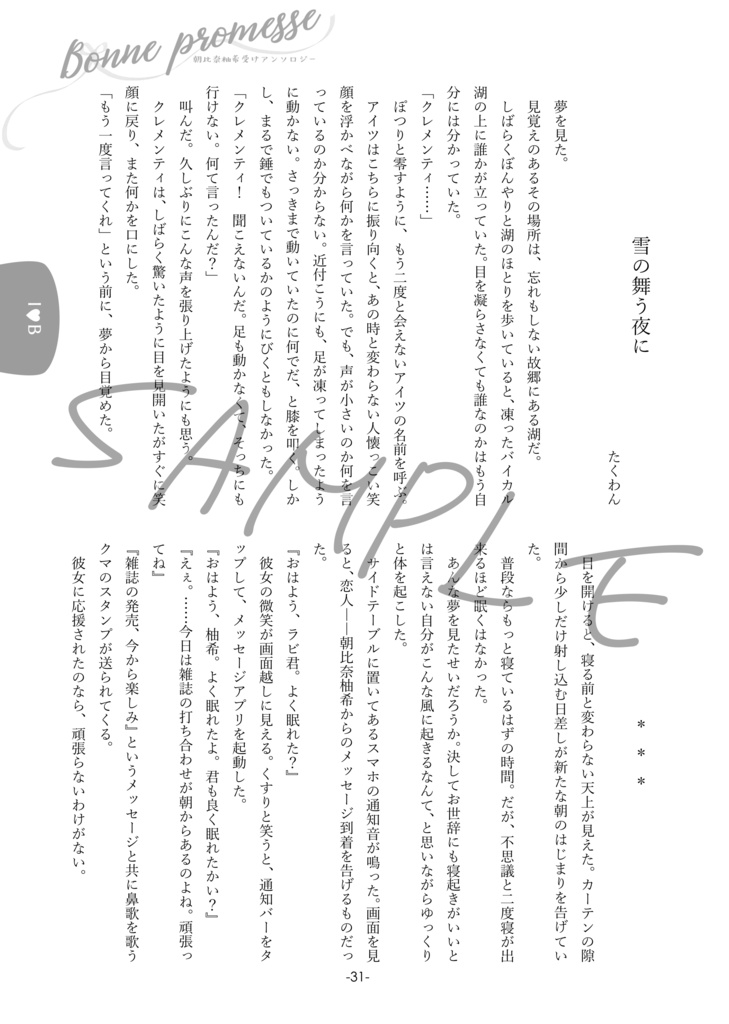 Bonne promesse
朝比奈柚希受けアンソロジー
雪の舞う夜に
たくわん
夢を見た。
見覚えのあるその場所は、忘れもしない故郷にある湖だ。
しばらくぼんやりと湖のほとりを歩いていると、凍ったバイカル
湖の上に誰かが立っていた。目を凝らさなくても誰なのかはもう自
分には分かっていた。
「クレメンティ……」
ぽつりと零すように、もう二度と会えないアイツの名前を呼ぶ。
アイツはこちらに振り向くと、あの時と変わらない人懐っこい笑
顔を浮かべながら何かを言っていた。でも、声が小さいのか何を言
っているのか分からない。近付こうにも、足が凍ってしまったよう
に動かない。さっきまで動いていたのに何でだ、と膝を叩く。しか
し、まるで錘でもついているかのようにびくともしなかった。
「クレメンティ！　聞こえないんだ。足も動かなくて、そっちにも
行けない。何て言ったんだ？」
叫んだ。久しぶりにこんな声を張り上げたようにも思う。
クレメンティは、しばらく驚いたように目を見開いたがすぐに笑
顔に戻り、また何かを口にした。
「もう一度言ってくれ」という前に、夢から目覚めた。
＊　＊　＊
目を開けると、寝る前と変わらない天上が見えた。カーテンの隙
間から少しだけ射し込む日差しが新たな朝のはじまりを告げてい
た。
普段ならもっと寝ているはずの時間。だが、不思議と二度寝が出
来るほど眠くはなかった。
あんな夢を見たせいだろうか。決してお世辞にも寝起きがいいと
は言えない自分がこんな風に起きるなんて、と思いながらゆっくり
と体を起こした。
サイドテーブルに置いてあるスマホの通知音が鳴った。画面を見
ると、恋人――朝比奈柚希からのメッセージ到着を告げるものだっ
た。
『おはよう、ラビ君。よく眠れた？』
彼女の微笑が画面越しに見える。くすりと笑うと、通知バーをタ
ップして、メッセージアプリを起動した。
『おはよう、柚希。よく眠れたよ。君も良く眠れたかい？』
『えぇ。……今日は雑誌の打ち合わせが朝からあるのよね。頑張っ
てね』
『雑誌の発売、今から楽しみ』というメッセージと共に鼻歌を歌う
クマのスタンプが送られてくる。
彼女に応援されたのなら、頑張らないわけがない。
I♥B
SAMPLE
-31-